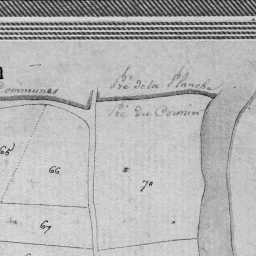 Pré de la Planche
Communes
Pré du Cormier
65
66
70
67